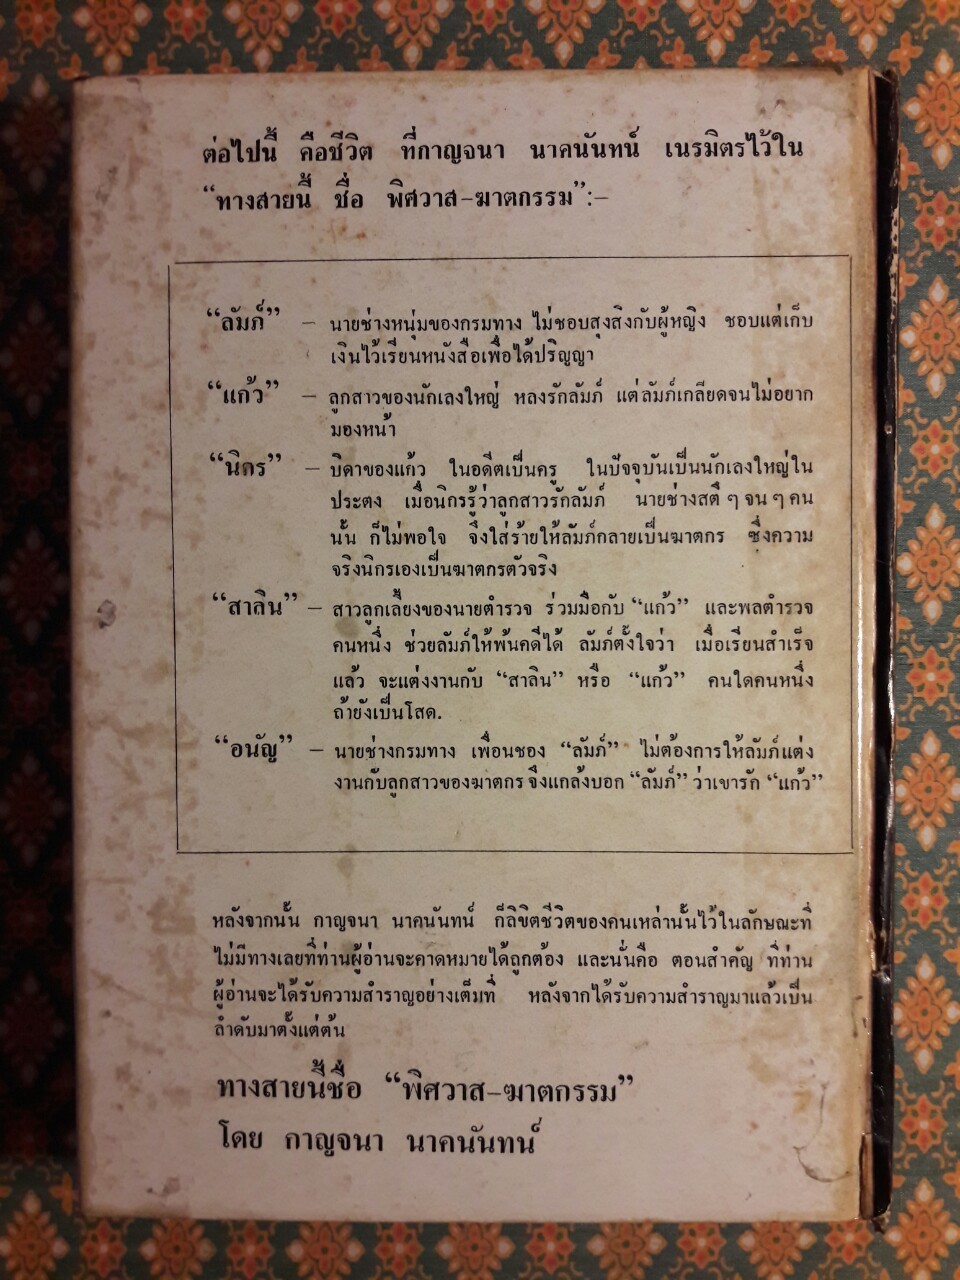 ต่อไปนี้ คือชีวิต ที่กาญจนา นาคนันทน์ เนรมิตรไว้ใน
“ทางสายนี้ ชื่อ พิศวาส-ฆาตกรรม”:-
“ลัมภ์” – นายช่างหนุ่มของกรมทาง ไม่ชอบสุงสิงกับผู้หญิง ชอบแต่เก็บ
เงินไว้เรียนหนังสือเพื่อได้ปริญญา
“แก้ว” – ลูกสาวของนักเลงใหญ่ หลงรักลัมภ์ แต่ลัมภ์เกลียดจนไม่อยาก
มองหน้า
“นิกร” – บิดาของแก้ว ในอดีตเป็นครู ในปัจจุบันเป็นนักเลงใหญ่ใน
ประตง เมื่อนิกรรู้ว่าลูกสาวรักลัมภ์ นายช่างสติ ๆ จน ๆ คน
นั้น ก็ไม่พอใจ จึงใส่ร้ายให้ลัมภ์กลายเป็นฆาตกร ซึ่งความ
จริงนิกรเองเป็นฆาตกรตัวจริง
“สาลิน” – สาวลูกเลี้ยงของนายตำรวจ ร่วมมือกับ “แก้ว” และพลตำรวจ
คนหนึ่ง ช่วยลัมภ์ให้พ้นคดีได้ ลัมภ์ตั้งใจว่า เมื่อเรียนสำเร็จ
แล้ว จะแต่งงานกับ “สาลิน” หรือ “แก้ว” คนใดคนหนึ่ง
ถ้ายังเป็นโสด.
“อนัญ” – นายช่างกรมทาง เพื่อนชอง “ลัมภ์” ไม่ต้องการให้ลัมภ์แต่ง
งานกับลูกสาวของฆาตกร จึงแกล้งบอก “ลัมภ์” ว่าเขารัก “แก้ว”
หลังจากนั้น กาญจนา นาคนันทน์ ก็ลิขิตชีวิตของคนเหล่านั้นไว้ในลักษณะที่
ไม่มีทางเลยที่ท่านผู้อ่านจะคาดหมายได้ถูกต้อง และนั่นคือ ตอนสำคัญ ที่ท่าน
ผู้อ่านจะได้รับความสำราญอย่างเต็มที่ หลังจากได้รับความสำราญมาแล้วเป็น
ลำดับมาตั้งแต่ต้น
ทางสายนี้ชื่อ “พิศวาส-ฆาตกรรม”
โดย กาญจนา นาคนันทน์